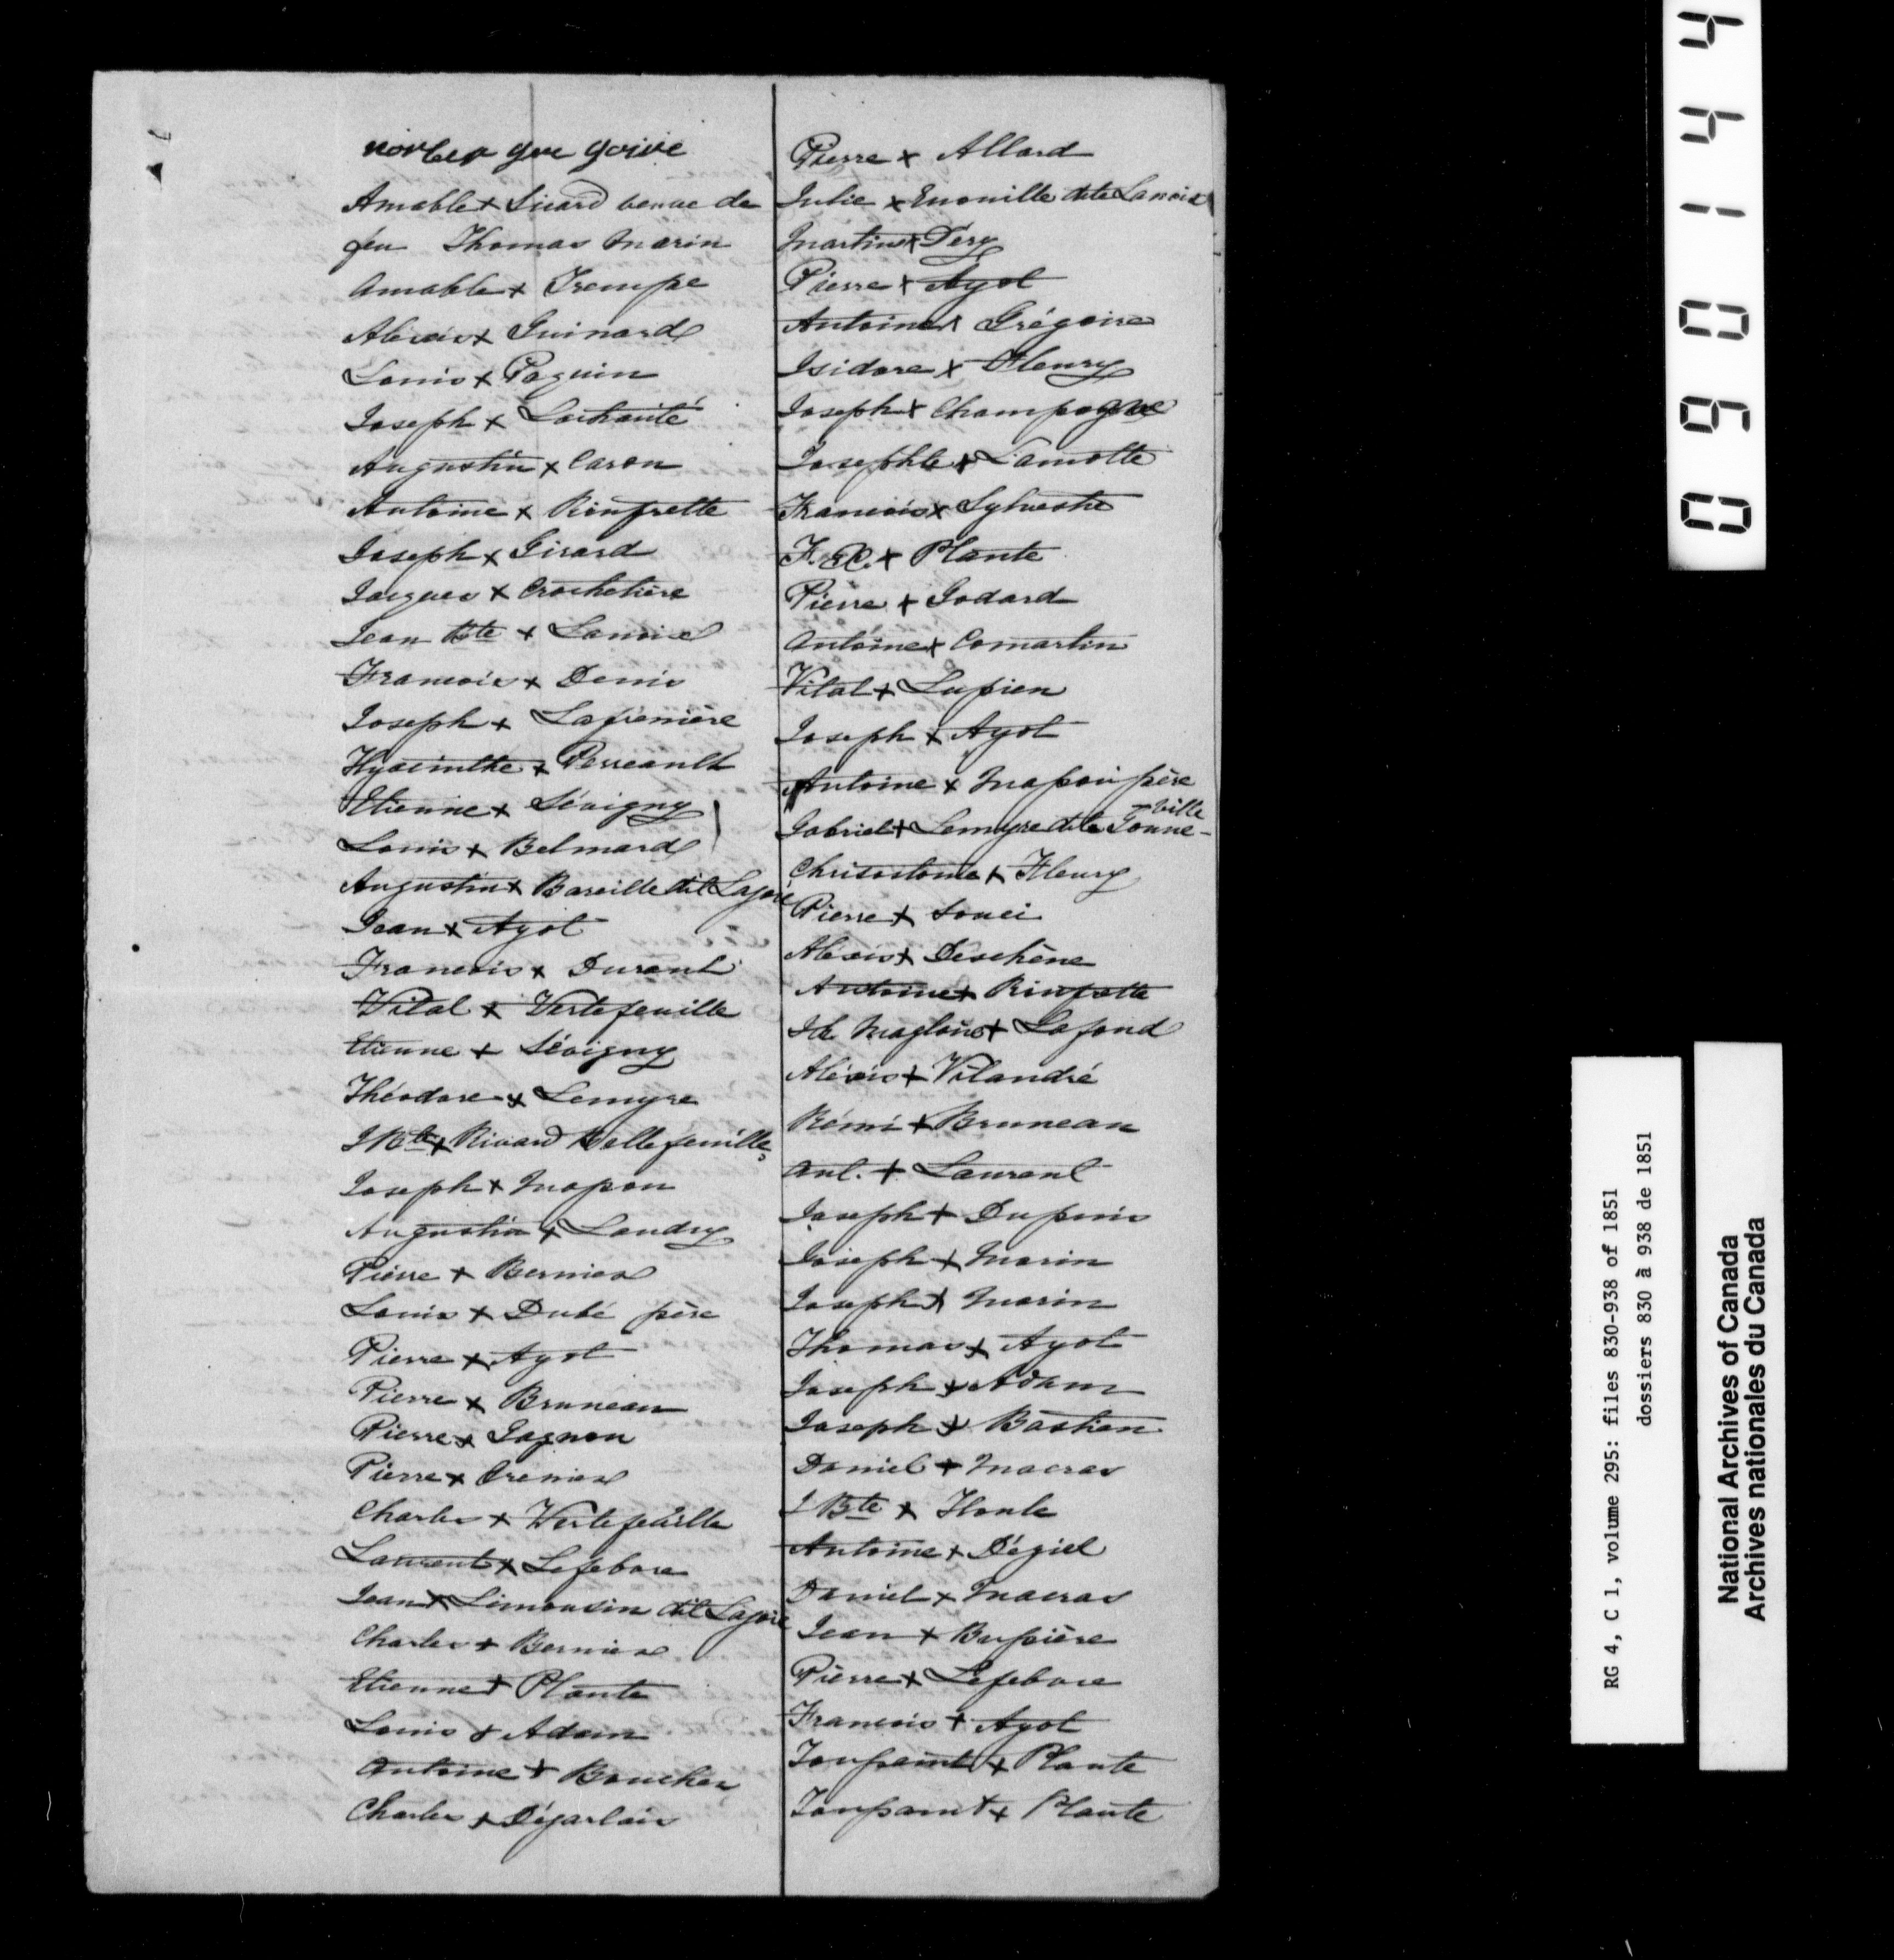 norber gre goive
Amable + Sicard veuve de
feu Thomas Marin
Amable + Trempe
Alexis + Guinard
Louis + Paquin
Joseph + Lachanté
Augustin + Caron
Antoine + Rinfrette
Joseph + Girard
Jacques + Crochetière
Jean Bte + Lanoix
Francois + Denis
Joseph + Lafrenière
Hyacinthe + Perreault
Etienne + Sévigny
Louis + Belmard
Augustin + Bareille dit Lajoie
Jean + Ayot
Francois + Durant
Vital + Vertefeuille
Etienne + Sévigny
Théodore + Lemyre
J Bte + Rivard Bellefeuille
Joseph + Masson
Augustin + Landry
Pierre + Bernier
Louis + Dubé père
Pierre + Ayot
Pierre + Bruneau
Pierre + Gagnon
Pierre + Crenier
Charles + Vertefeuille
Laurent + Lefebvre
Jean + Limousin dit Lajoie
Charles + Bernier
Etienne + Plante
Louis + Adam
Antoine + Boucher
Charles + Déjarlais
Pierre + Allard
Julie + Enouille dite Lanoix
Martin + Déry
Pierre + Ayot
Antoine + Grégoire
Isidore + Fleury
Joseph + Champagne
Josephte + Lamotte
Francois + Sylvestre
F. X. + Plante
Pierre + Godard
Antoine + Comartin
Vital + Lupien
Joseph + Ayot
Antoine + Masson père
Gabriel + Lemyre dite Gonneville
Chrisostome + Fleury
Pierre + Souci
Aléxis + Deschêne
Antoine + Rinfrette
Magloire + Lafond
Aléxis + Vilandré
Rémi + Bruneau
Ant. + Laurent
Joseph + Dupuis
Joseph + Marin
Joseph + Marin
Thomas + Ayot
Joseph + Adam
Joseph + Bastien
Daniel + Macras
J Bte + Houle
Antoine + Dégiel
Daniel + Macras
Jean + Bussière
Pierre + Lefebvre
Francois + Ayot
Toussaint + Plante
Toussaint + Plante
090144
RG 4, C 1, volume 295: files 830-938 of 1851
dossiers 830 à 938 de 1851
National Archives of Canada
Archives nationales du Canada